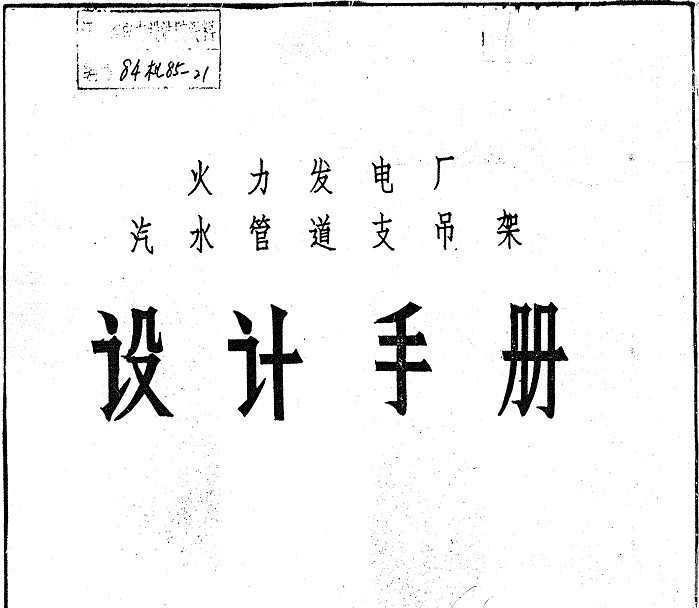 84机85-21
火力发电厂
汽水管道支吊架
设计手册